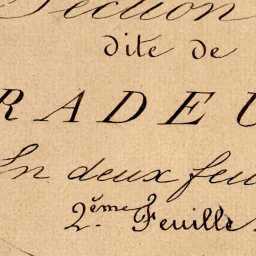 Section
dite de
RADEU
En deux feu
2ème Feuille.